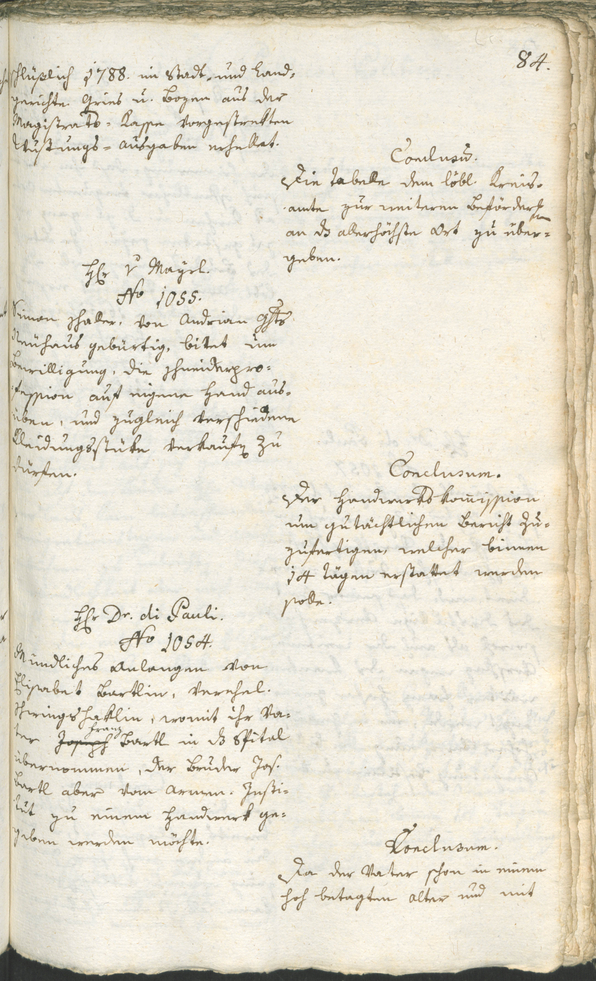 84.
schlüßlich 1788. im Stadt- und Land-
gerichte Gries u. Bozen aus der
Magistrats-Kasse vorgestrekten
Rüstungs-Ausgaben erhellet.
Conclusum.
Die Tabelle dem löbl. Kreis-
amte zur weiteren Beförderung
an ds allerhöchste Ort zu über-
geben.
Hr v Mayrl.
No 1055.
Simon Thaler, von Andrian Gts
Neuhaus gebürtig, bitet um
Bewilligung, die Schneiderpro-
fession auf eigene Hand aus-
üben, und zugleich verschiedene
Kleidungsstüke verkaufen zu
dürfen.
Conclusum.
Der Handwerkskommission
um gutächtlichen Bericht zu-
zufertigen, welcher binnen
14 tägen erstattet werden
solle.
Hr Dr. di Pauli.
No 1054.
Mündliches Anlangen von
Elisabet Bartlin, verehel.
womit ihr Va-
ter Joseph Franz Bartl in ds Spital
übernommen, der Bruder Jos.
Bartl aber vom Armen-Insti-
tut zu einem Handwerk ge-
geben werden möchte.
Conclusum.
Da der Vater schon in einem
hoch betagten Alter und mit